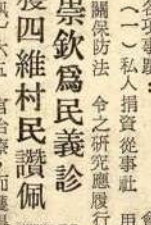 各項事蹟：（一）私人捐資從事社
關保防法 令之研究應履行
崇欽爲民義診
獲四維村民讚佩